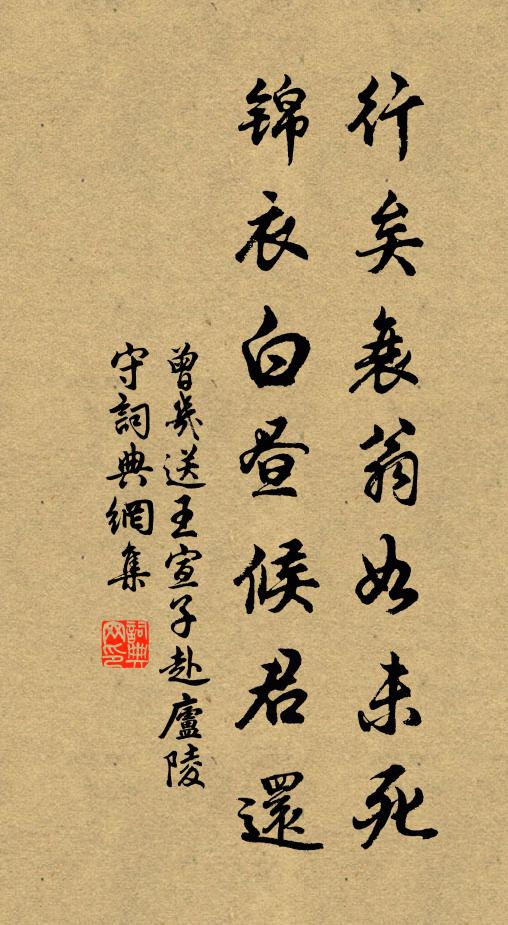 行矣衰翁如未死
锦衣白昼候君還
曾幾送王宣子赴廬陵
守詞典網集
詞典網印